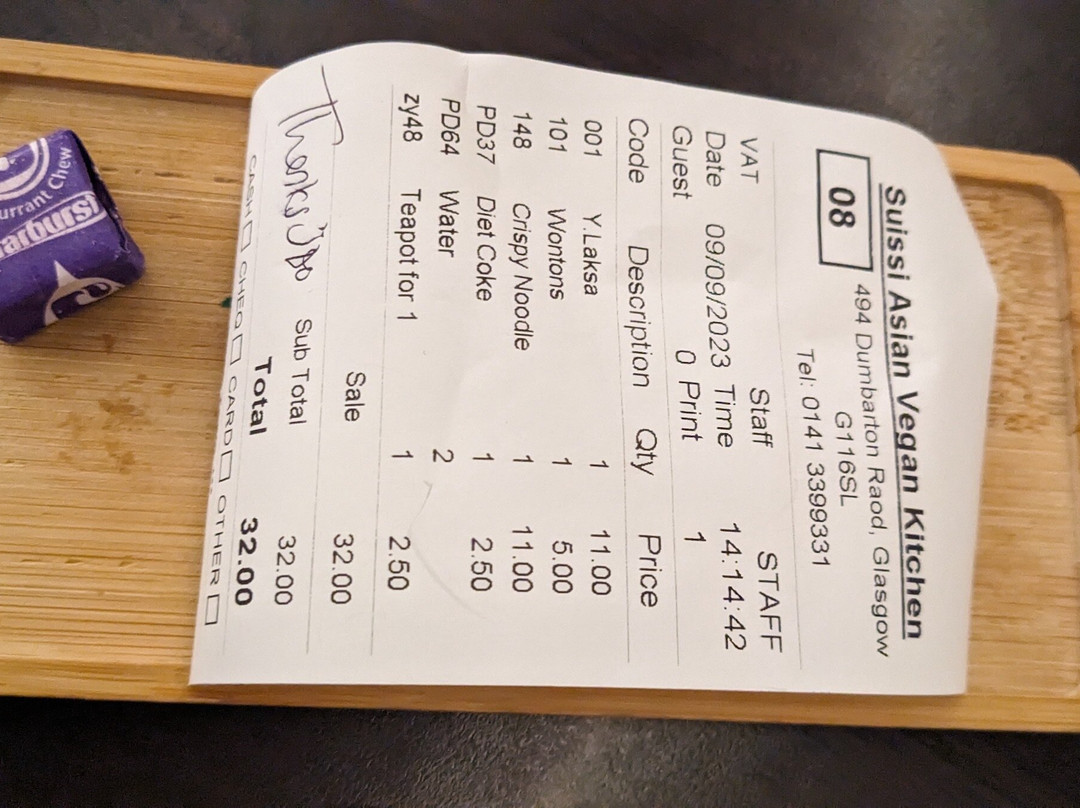 Suissi Asian Vegan Kitchen
08
494 Dumbarton Raod, Glasgow
G116SL
Tel: 0141 3399331
VAT Staff STAFF
Date 09/09/2023 Time 14:14:42
Guest 0 Print 1
Code Description Qty Price
001 Y.Laksa 1 11.00
101 Wontons 1 5.00
148 Crispy Noodle 1 11.00
PD37 Diet Coke 1 2.50
PD64 Water 2
zy48 Teapot for 1 1 2.50
Sale 32.00
Sub Total 32.00
Thanks
Total 32.00
CASH CHEQ CARD OTHER
urrant Chew
arburst